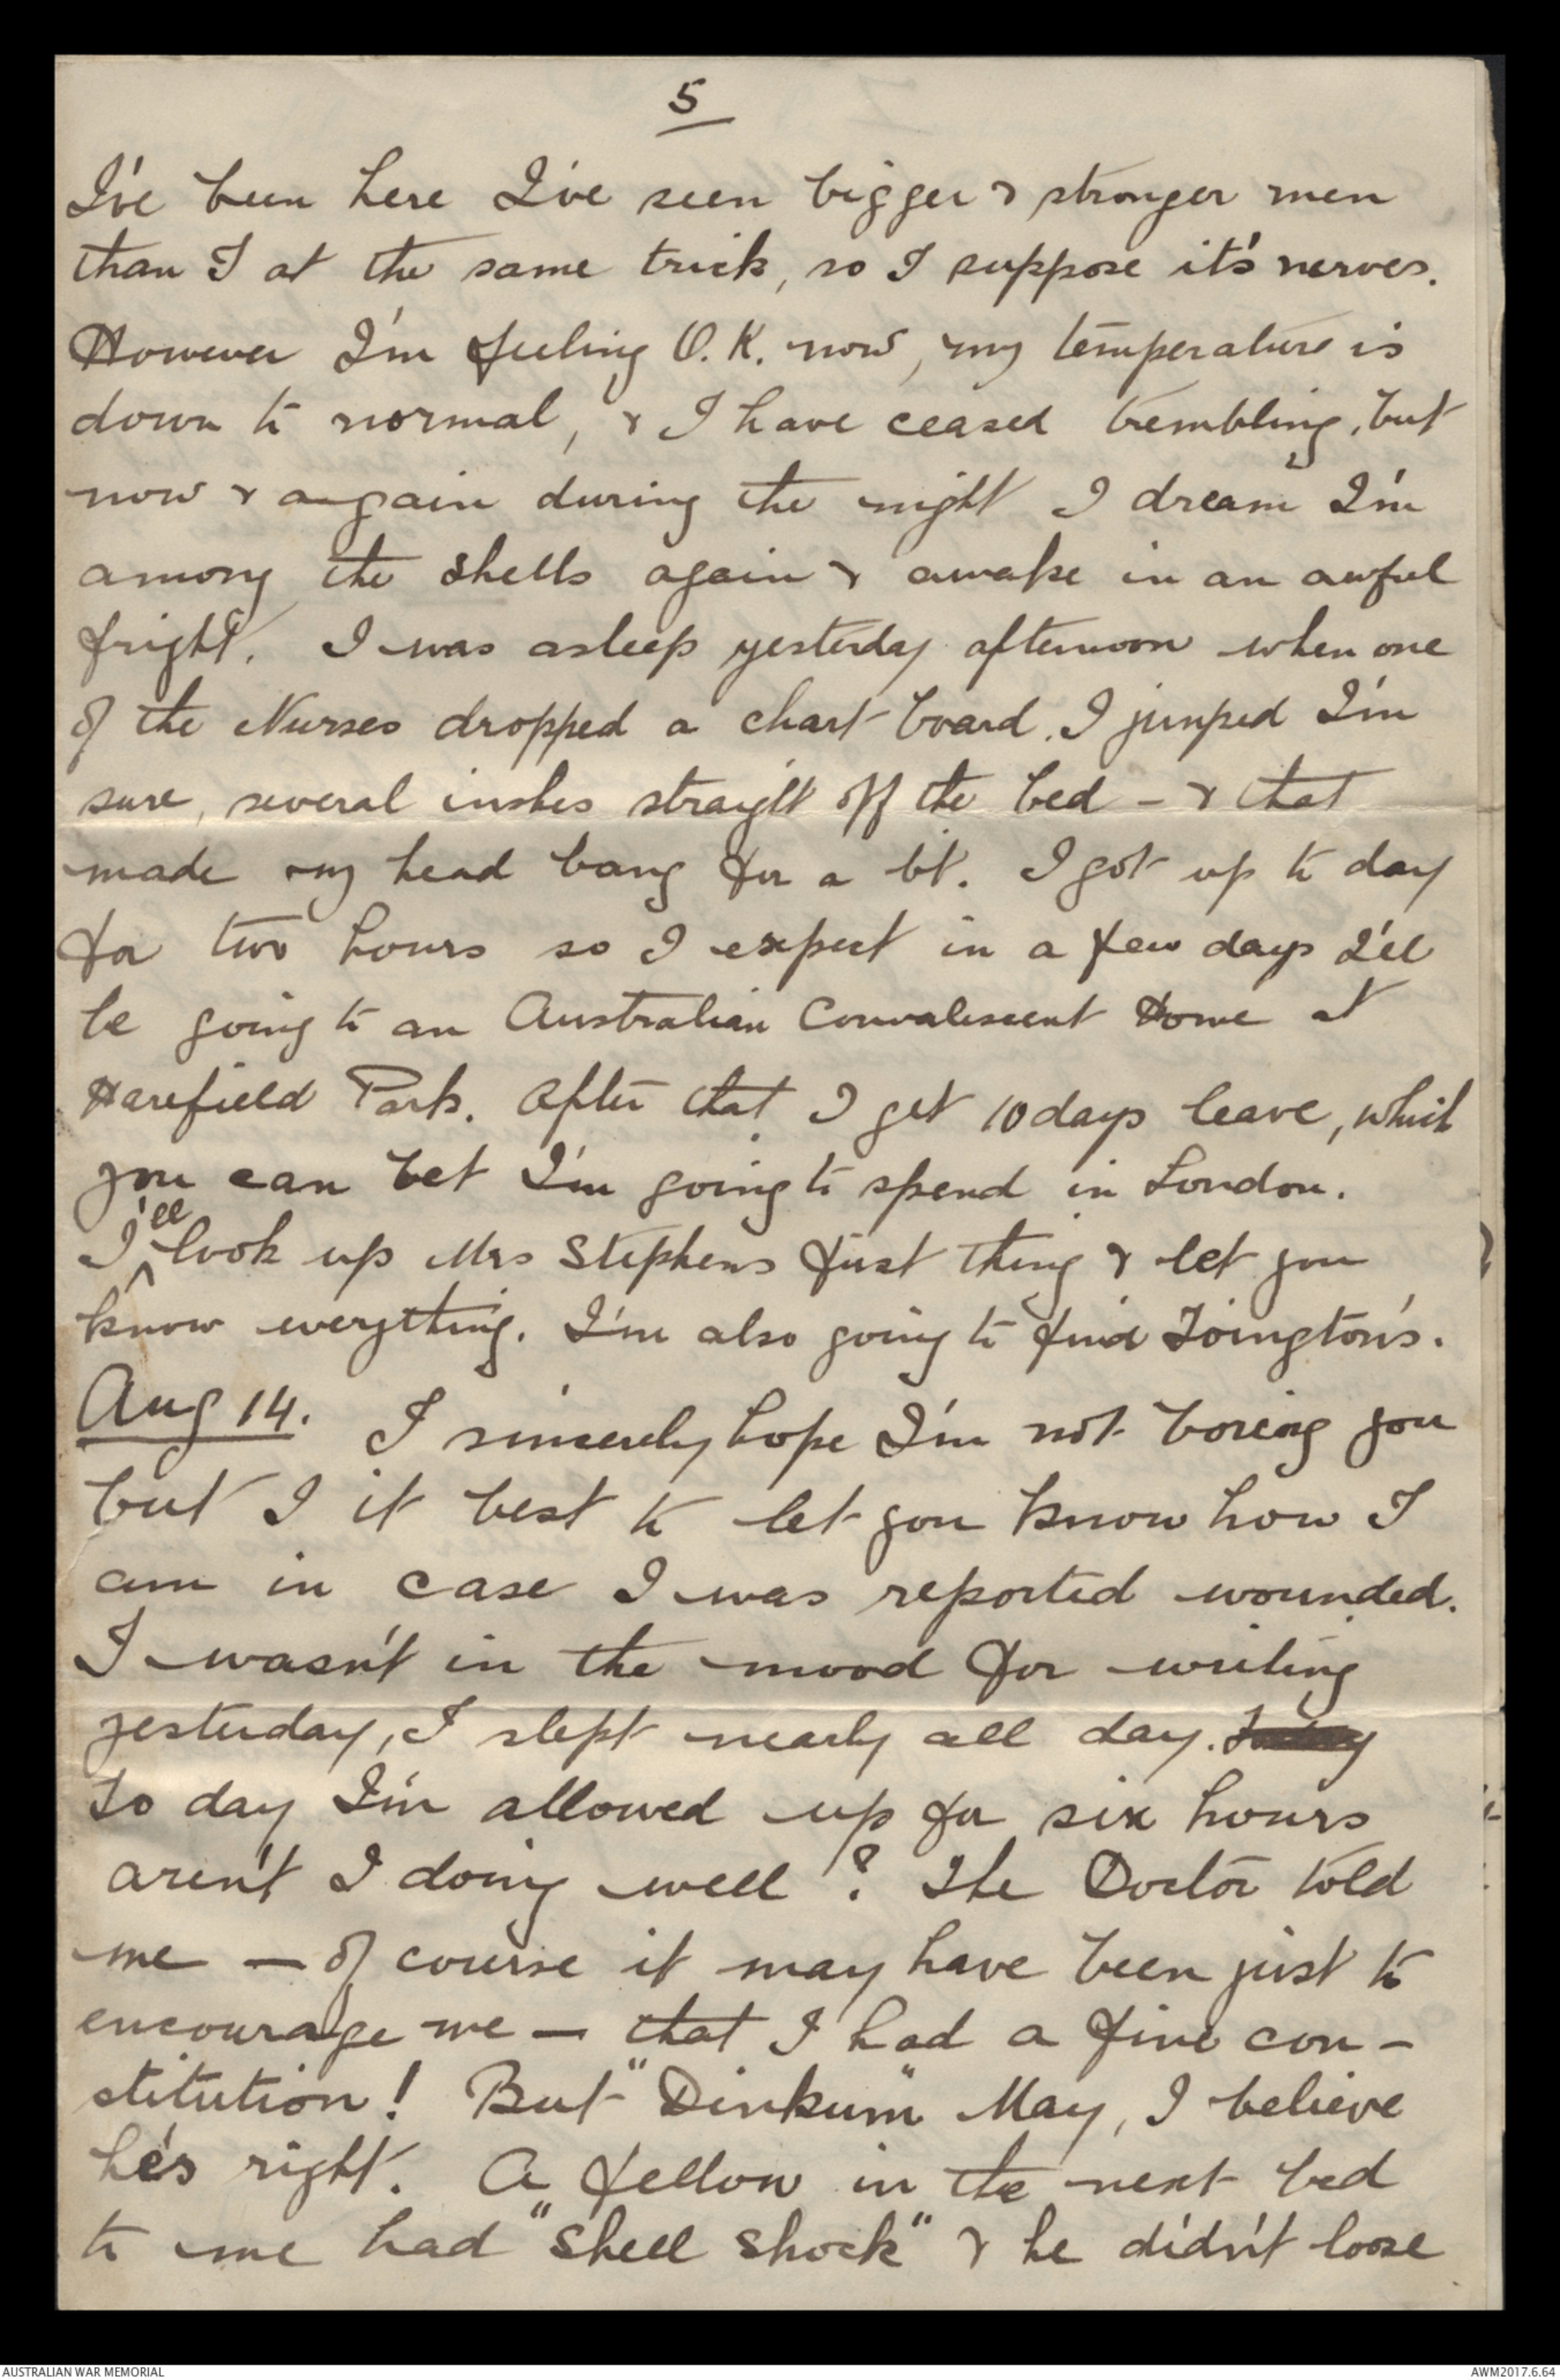 5
I've been here I've seen bigger & stronger men
than I at the same trick, so I suppose it's nerves.
However I'm feeling O.K. now, my temperature is
down to normal, & I have ceased trembling, but
now & again during the night I dream I'm
among the shells again & awake in an awful
fright. I was asleep yesterday afternoon when one
of the Nurses dropped a chart board. I jumped I'm
sure, several inches straight off the bed - & that
made my head bang for a bit. I got up to day
for two hours so I expect in a few days I'll
be going to an Australian Convalescent Home at
Harefield Park. After that I get 10 days leave, which
you can bet I'm going to spend in London.
I'll look up Mrs Stephens first thing & let you
know everything. I'm also going to find
Aug 14. I sincerely hope I'm not boring you
but I it best to let you know how I
am in case I was reported wounded.
I wasn't in the mood for writing
yesterday, I slept nearly all day.
To day I'm allowed up for six hours
aren't I doing well? The Doctor told
me — of course it may have been just to
encourage me — that I had a fine con-
stitution! But "Dinkum" May, I believe
he's right. A fellow in the next bed
to me had "Shell Shock" & he didn't loose
AUSTRALIAN WAR MEMORIAL
AWM2017.6.64